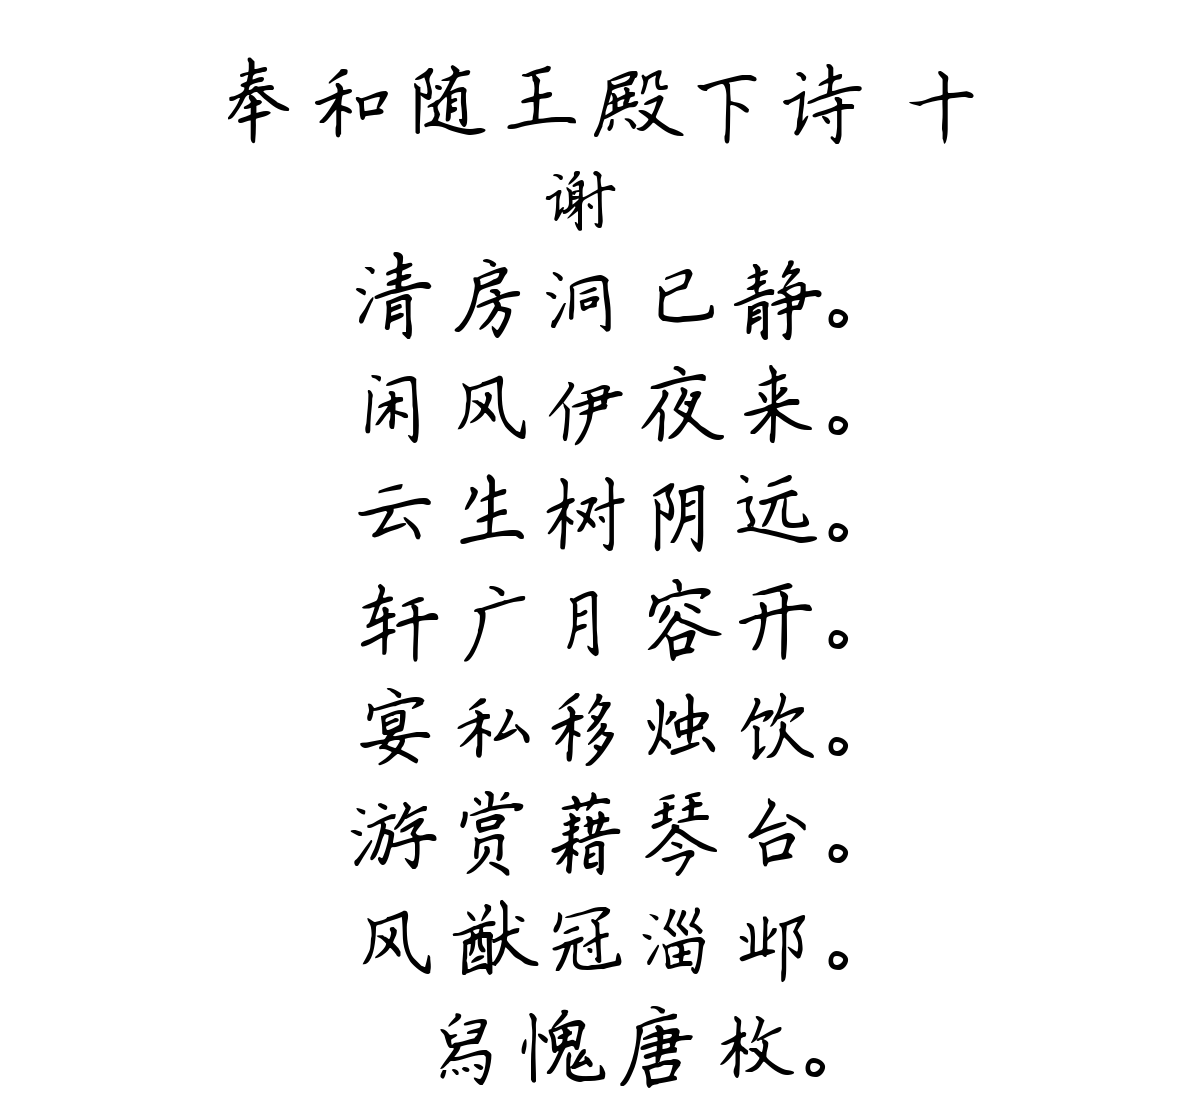 奉和随王殿下诗 十
谢
清房洞已静。
闲风伊夜来。
云生树阴远。
轩广月容开。
宴私移烛饮。
游赏藉琴台。
风猷冠淄邺。
舄愧唐枚。